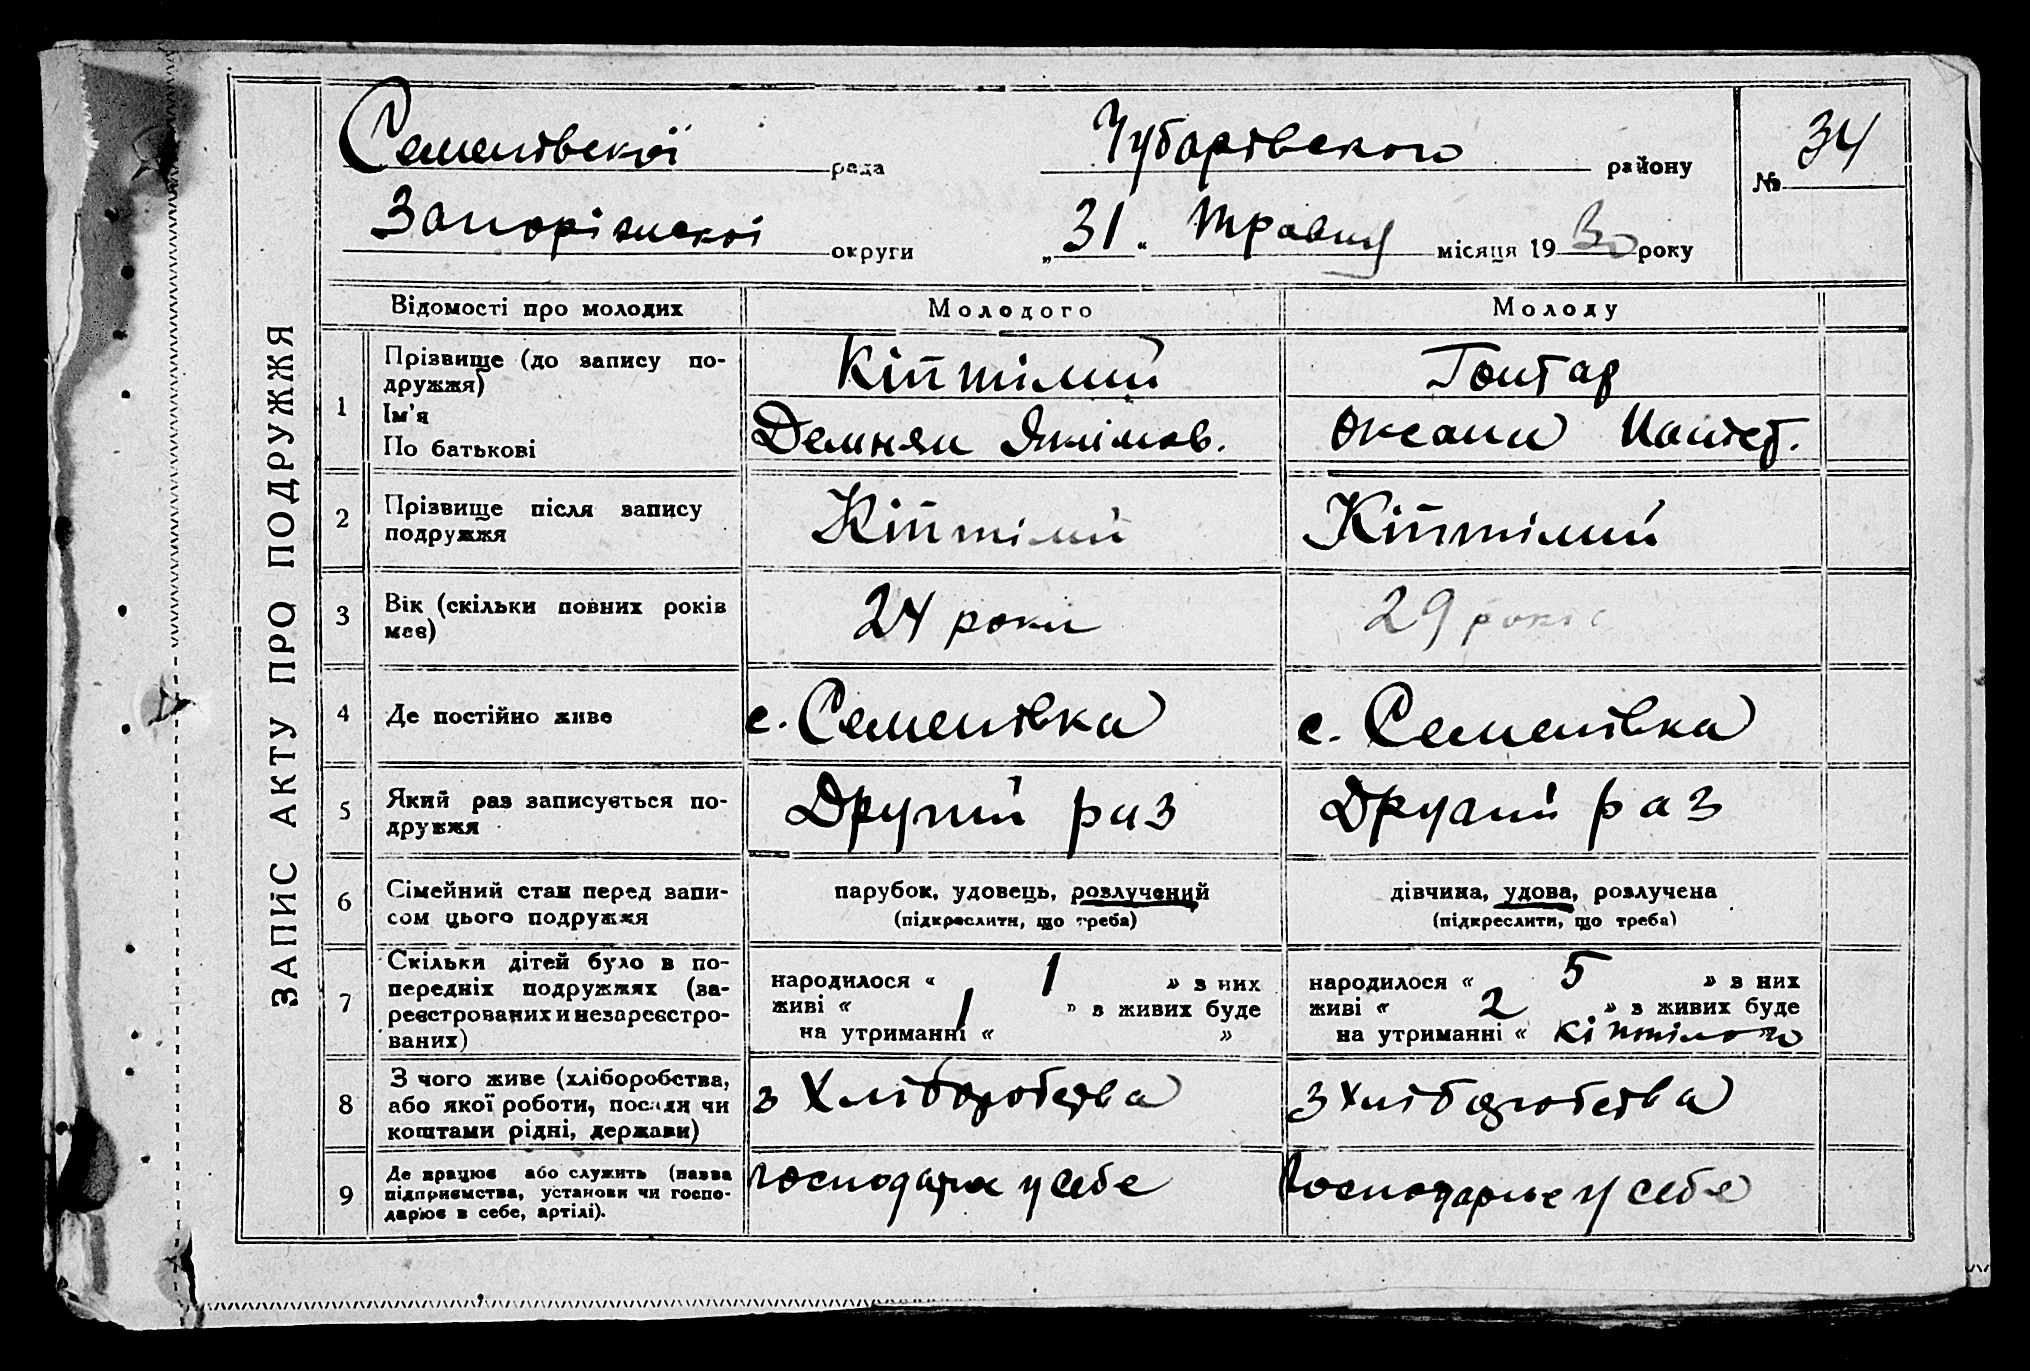 ЗАПИС АКТУ ПРО ПОДРУЖЖЯ
Семенівскої рада Чубарівского району № 34
Запоріжскої округи „31“ Травня місяця 1930 року
Відомості про молодих Молодого Молоду
1 Прізвище (до запису подружжя) Кіптілий Гонтар
Ім'я
По батькові Демян Якімов. Оксани
2 Прізвище після запису подружжя Кіптілий Кіптілий
3 Вік (скільки повних років має) 24 роки 29 років
4 Де постійно живе с. Семенівка с. Семенівка
5 Який раз записується подружжя Другий раз Другий раз
6 Сімейний стан перед записом цього подружжя парубок, удовець, розлучений дівчина, удова, розлучена
(підкреслити, що треба) (підкреслити, що треба)
7 Скільки дітей було в попередніх подружжях (зареєстрованих и незареєстрованих) народилося « 1 » з них народилося « 5 » з них
живі « 1 » з живих буде живі « 2 » з живих буде
на утриманні « » на утриманні « кіптілого »
8 З чого живе (хліборобства, або якої роботи, посади чи коштами рідні, держави) з Хліборобства з хліборобства
9 Де працює або служить (назва підприємства, установи чи господарює в себе, артілі). господарює у себе Господарює у себе